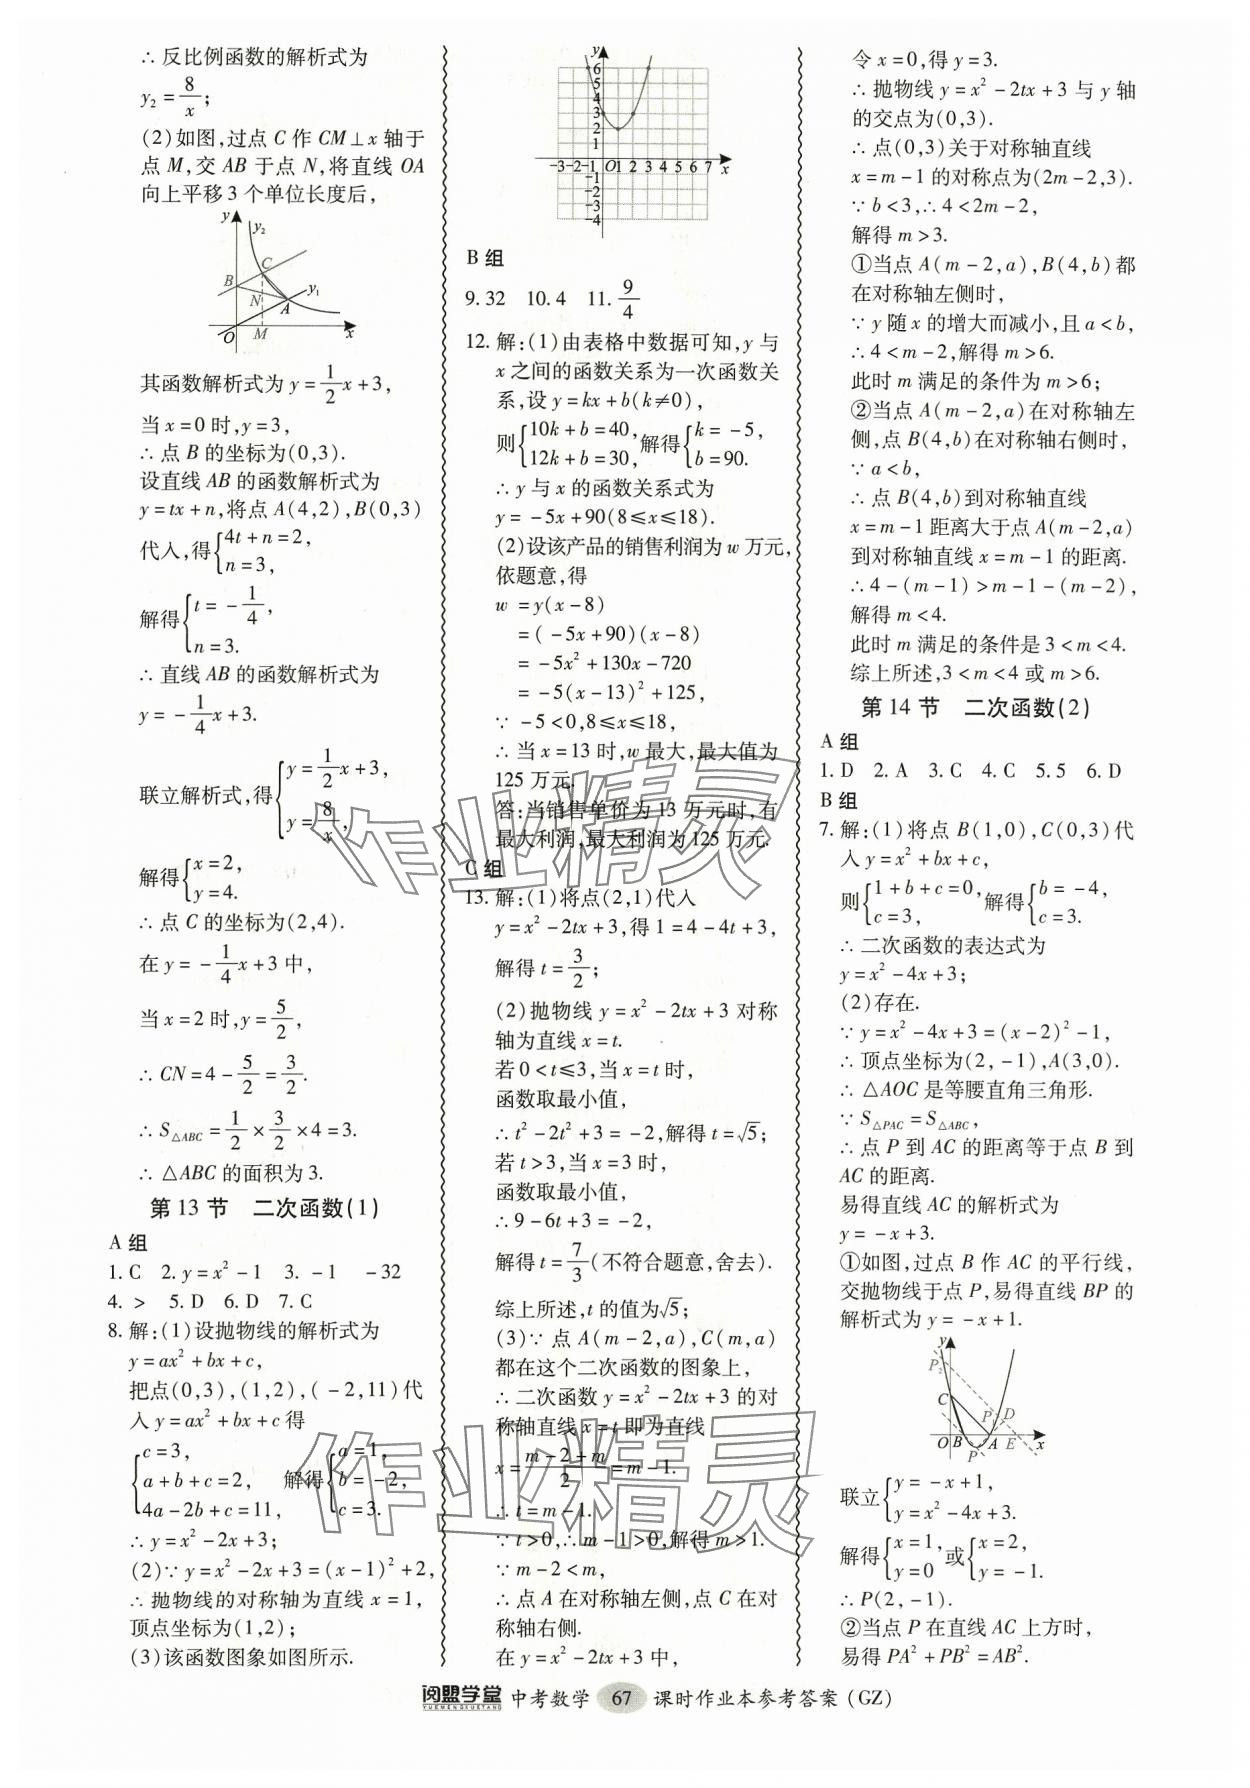 ∴反比例函数的解析式为
y₂=8/x;
(2)如图,过点 C 作 CM⊥x 轴于
点 M,交 AB 于点 N,将直线 OA
向上平移 3 个单位长度后,
y y₂ C B N A y₁ O M x
其函数解析式为 y=1/2x+3,
当 x=0 时,y=3,
∴点 B 的坐标为(0,3).
设直线 AB 的函数解析式为
y=tx+n,将点 A(4,2),B(0,3)
代入,得{4t+n=2, n=3,
解得{t=-1/4, n=3.
∴直线 AB 的函数解析式为
y=-1/4x+3.
联立解析式,得{y=1/2x+3, y=8/x,
解得{x=2, y=4.
∴点 C 的坐标为(2,4).
在 y=-1/4x+3 中,
当 x=2 时,y=5/2,
∴CN=4-5/2=3/2.
∴S△ABC=1/2×3/2×4=3.
∴△ABC 的面积为 3.
第 13 节 二次函数(1)
A 组
1.C 2.y=x²-1 3.-1 -32
4.> 5.D 6.D 7.C
8.解:(1)设抛物线的解析式为
y=ax²+bx+c,
把点(0,3),(1,2),(-2,11)代
入 y=ax²+bx+c 得
{c=3, a+b+c=2, 4a-2b+c=11, 解得{a=1, b=-2, c=3.
∴y=x²-2x+3;
(2)∵y=x²-2x+3=(x-1)²+2,
∴抛物线的对称轴为直线 x=1,
顶点坐标为(1,2);
(3)该函数图象如图所示.
y 6 5 4 3 2 1 -3-2-1 O 1 2 3 4 5 6 7 x -1 -2 -3 -4
B 组
9.32 10.4 11.9/4
12.解:(1)由表格中数据可知,y 与
x 之间的函数关系为一次函数关
系,设 y=kx+b(k≠0),
则{10k+b=40, 12k+b=30, 解得{k=-5, b=90.
∴y 与 x 的函数关系式为
y=-5x+90(8≤x≤18).
(2)设该产品的销售利润为 w 万元,
依题意,得
w=y(x-8)
=(-5x+90)(x-8)
=-5x²+130x-720
=-5(x-13)²+125,
∵-5<0,8≤x≤18,
∴当 x=13 时,w 最大,最大值为
125 万元.
答:当销售单价为 13 万元时,有
最大利润,最大利润为 125 万元.
C 组
13.解:(1)将点(2,1)代入
y=x²-2tx+3,得 1=4-4t+3,
解得 t=3/2;
(2)抛物线 y=x²-2tx+3 对称
轴为直线 x=t.
若 0<t≤3,当 x=t 时,
函数取最小值,
∴t²-2t²+3=-2,解得 t=√5;
若 t>3,当 x=3 时,
函数取最小值,
∴9-6t+3=-2,
解得 t=7/3(不符合题意,舍去).
综上所述,t 的值为√5;
(3)∵点 A(m-2,a),C(m,a)
都在这个二次函数的图象上,
∴二次函数 y=x²-2tx+3 的对
称轴直线 x=t 即为直线
x=(m-2+m)/2=m-1.
∴t=m-1.
∵t>0,∴m-1>0,解得 m>1.
∵m-2<m,
∴点 A 在对称轴左侧,点 C 在对
称轴右侧.
在 y=x²-2tx+3 中,
令 x=0,得 y=3.
∴抛物线 y=x²-2tx+3 与 y 轴
的交点为(0,3).
∴点(0,3)关于对称轴直线
x=m-1 的对称点为(2m-2,3).
∵b<3,∴4<2m-2,
解得 m>3.
①当点 A(m-2,a),B(4,b)都
在对称轴左侧时,
∵y 随 x 的增大而减小,且 a<b,
∴4<m-2,解得 m>6.
此时 m 满足的条件为 m>6;
②当点 A(m-2,a)在对称轴左
侧,点 B(4,b)在对称轴右侧时,
∵a<b,
∴点 B(4,b)到对称轴直线
x=m-1 距离大于点 A(m-2,a)
到对称轴直线 x=m-1 的距离.
∴4-(m-1)>m-1-(m-2),
解得 m<4.
此时 m 满足的条件是 3<m<4.
综上所述,3<m<4 或 m>6.
第 14 节 二次函数(2)
A 组
1.D 2.A 3.C 4.C 5.5 6.D
B 组
7.解:(1)将点 B(1,0),C(0,3)代
入 y=x²+bx+c,
则{1+b+c=0, c=3, 解得{b=-4, c=3.
∴二次函数的表达式为
y=x²-4x+3;
(2)存在.
∵y=x²-4x+3=(x-2)²-1,
∴顶点坐标为(2,-1),A(3,0).
∴△AOC 是等腰直角三角形.
∵S△PAC=S△ABC,
∴点 P 到 AC 的距离等于点 B 到
AC 的距离.
易得直线 AC 的解析式为
y=-x+3.
①如图,过点 B 作 AC 的平行线,
交抛物线于点 P,易得直线 BP 的
解析式为 y=-x+1.
y P₂ C P₁ D O B A E x P
联立{y=-x+1, y=x²-4x+3.
解得{x=1, y=0 或{x=2, y=-1.
∴P(2,-1).
②当点 P 在直线 AC 上方时,
易得 PA²+PB²=AB².
阅盟学堂 YUEMENGXUETANG 中考数学 67 课时作业本参考答案(GZ)
作业精灵
作业精灵